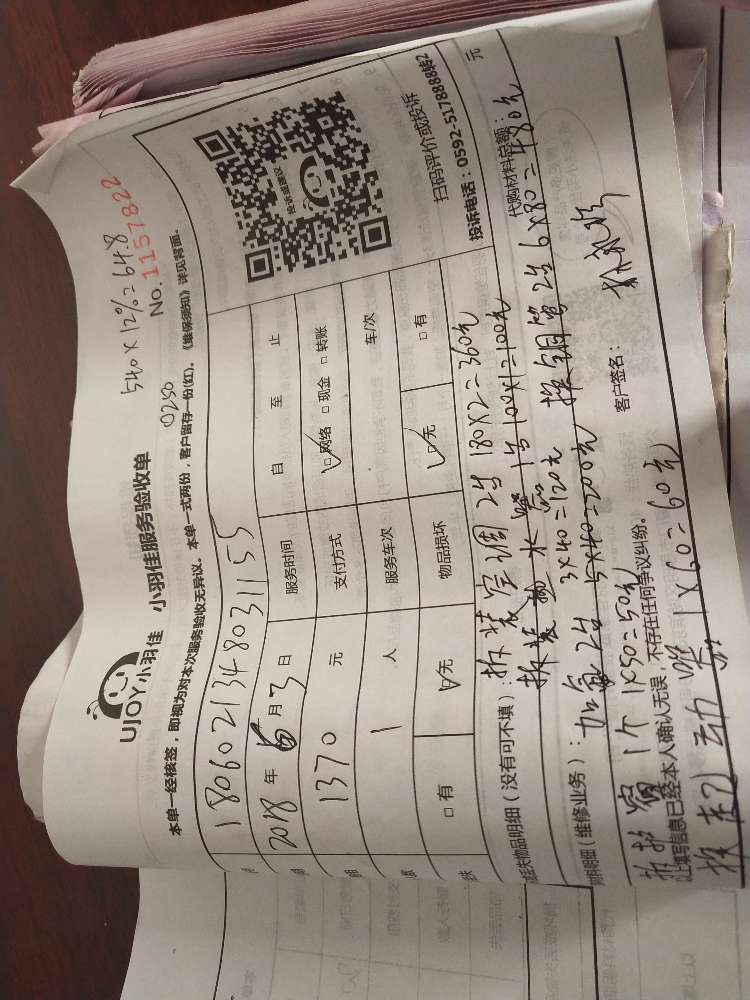 540×12%=64.8
UJOY小羽佳 小羽佳服务验收单 0250 No.1157822
本单一经核签，即视为对本次服务验收无异议。本单一式两份，客户留存一份(红)。《维保须知》详见背面。
1806021348031155
2018年6月3日 服务时间 自 至 止
1370 元 支付方式 ☑网络 □现金 □转账
1 人 服务车次 车/次
□有 ☑无 物品损坏 ☑无 □有
投诉或建议
扫码评价或投诉
投诉电话：0592-5178888转2
物品明细（没有可不填）： 拆装空调2台 180×2=360元
拆装热水器1台100×1=100元 代购材料总额： 元
材料明细（维修业务）： 加氟2台 3×40=120元 换铜管2台 6×80=480元
5×40=200元
拆 窗1个 1×50=50元
以上填写信息已经本人确认无误，不存在任何争议纠纷。 客户签名：
换 动器 1×60=60元